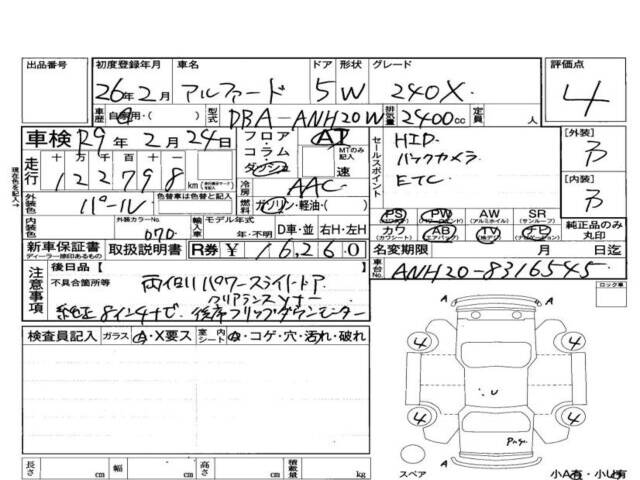 出品番号 初度登録年月 車名 ドア 形状 グレード 評価点
26年2月 アルファード 5 W 240X 4
車歴 自家用・( ) 型式 DBA-ANH20W 排気量 2400cc 定員 人
車検 R9年2月24日 フロア・コラム・ダッシュ AT セールスポイント HID [外装]
MTのみ記入 速 バックカメラ
走行 十万 万 千 百 十 一 ETC
122798 km 冷房 AAC [内装]
外装色 パール 色替車は色替と記入 燃料 ガソリン・軽油・( )
PS PW AW SR
(パワステ) (パワーウインド) (アルミホイル) (サンルーフ)
内装色 外装カラーNo. 070 輸入車 モデル年式 年・不明 D車・並 右H・左H カワ AB TV 純正品のみ丸印
(カワシート) (エアバック)
新車保証書 取扱説明書 R券 ¥16,260 名変期限 月 日迄
ディーラー捺印あるもの
車台No. ANH20-8316545
注意事項 後日品[ ]
不具合箇所等 両側パワースライドドア
クリアランスソナー
純正8インチナビ 後席フリップダウンモニター
現在色を記入→
ロック車
検査員記入 ガラス A・X要ス 室内シート コゲ・穴・汚れ・破れ
A
4 4
U
4 4
A
スペア
長さ cm 幅 cm 高さ cm 積載量 kg 小A有・小U有